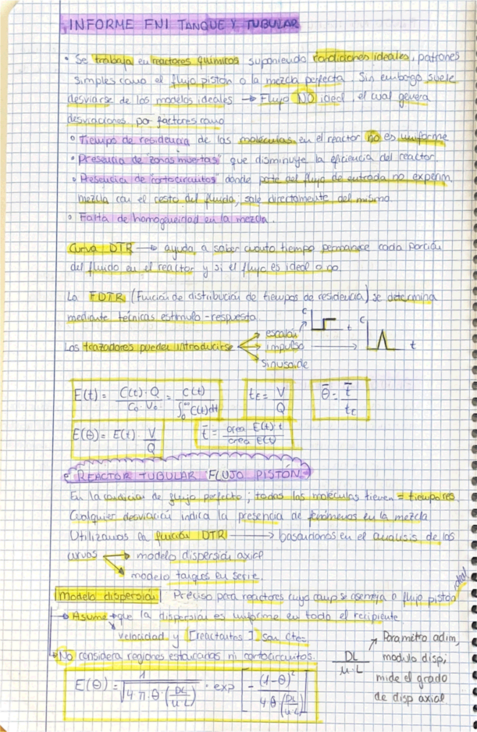 INFORME FNI TANQUE Y TUBULAR
• Se trabaja en reactores químicos suponiendo condiciones ideales, patrones
simples como el flujo pistón o la mezcla perfecta. Sin embargo suele
desviarse de los modelos ideales → Flujo NO ideal, el cual genera
desviaciones por factores como
• Tiempo de residencia de las moléculas en el reactor no es uniforme
• Presencia de zonas muertas que disminuye la eficiencia del reactor
• Presencia de cortocircuitos donde parte del flujo de entrada no experim
mezcla con el resto del fluido, sale directamente del mismo
• Falta de homogeneidad en la mezcla
Curva DTR → ayuda a saber cuanto tiempo permanece cada porción
del fluido en el reactor y si el flujo es ideal o no
La FDTR (Función de distribución de tiempos de residencia) se determina
mediante técnicas estímulo-respuesta
Los trazadores pueden introducirse
escalón
impulso
sinusoide
C t
C t
E(t) = C(t)·Q / C₀·V₀ = C(t) / ∫₀^∞ C(t)dt
t_r = V / Q
θ̄ = t̄ / t_r
E(θ) = E(t) · V / Q
t̄ = area E(t)·t / area E(t)
REACTOR TUBULAR FLUJO PISTÓN
En la condición de flujo perfecto, todas las moléculas tienen = tiempo res
Cualquier desviación indica la presencia de fenómenos en la mezcla
Utilizamos la función DTR → basándonos en el análisis de las
curvas
→ modelo dispersión axial
→ modelo tanques en serie
Modelo dispersión Preciso para reactores cuyo comp se asemeja a flujo pistón ideal
→ Asume que la dispersión es uniforme en todo el recipiente
velocidad y [reactantes] son ctes
No considera regiones estancanas ni cortocircuitos
DL / u·L
Parametro adim,
modulo disp,
mide el grado
de disp axial
E(θ) = 1 / √(4·π·θ (DL / u·L)) · exp [ - (1-θ)² / 4θ (DL / u·L) ]